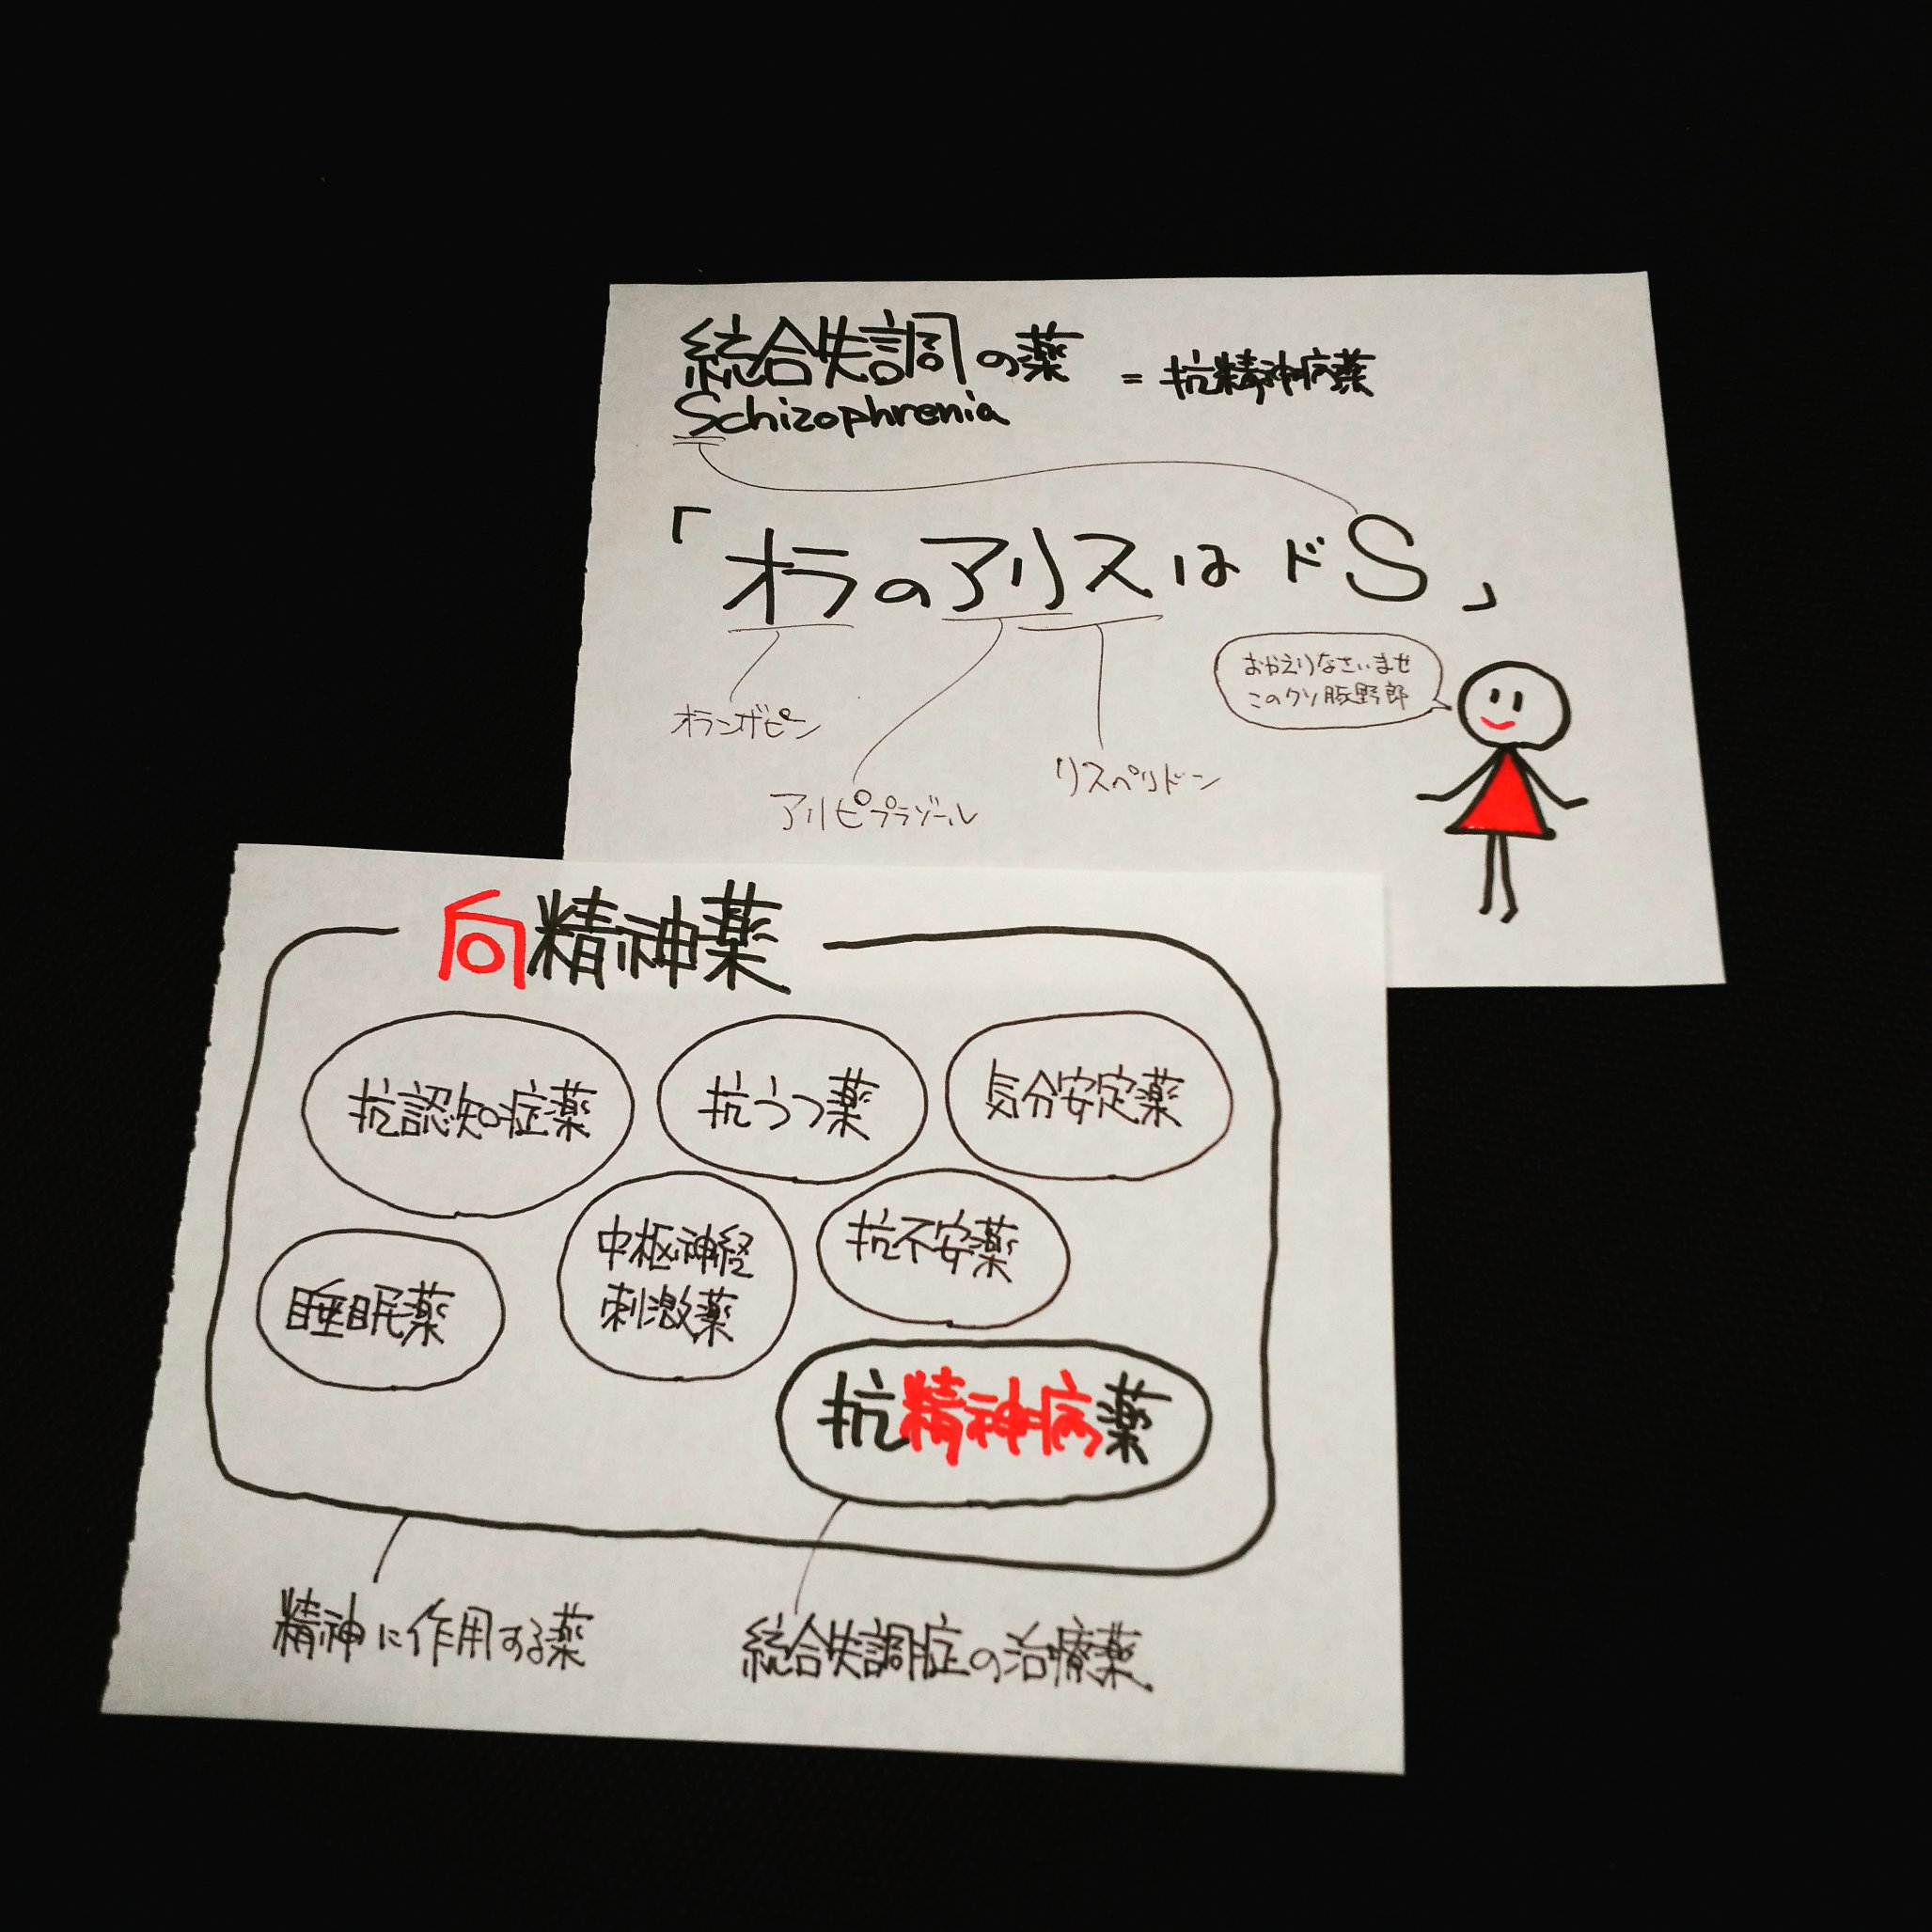 統合失調の薬 = 抗精神病薬
Schizophrenia
「オラのアリスはドS」
オランザピン
アリピプラゾール
リスペリドン
おかえりなさいませ
このクソ豚野郎
向精神薬
抗認知症薬
抗うつ薬
気分安定薬
睡眠薬
中枢神経
刺激薬
抗不安薬
抗精神病薬
精神に作用する薬
統合失調症の治療薬